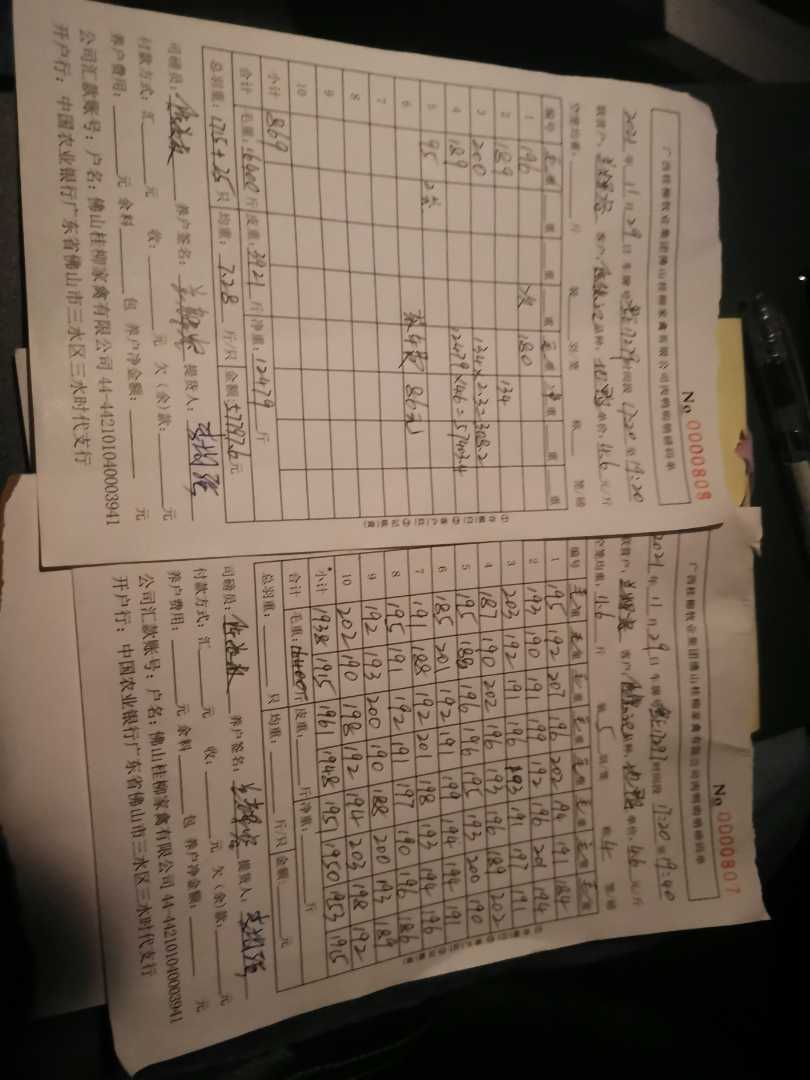 No 0000808
广西桂柳牧业集团佛山桂柳家禽有限公司肉鸭销售磅码单
2021年11月29日 车牌号 时间段 17:20 至 19:20
客户: 品种: 单价: 4.6 元/斤
空笼均重: 斤
编号 毛重 重 重 重 毛重 重 重 重
1 196 次 180
2 189 134
3 200 134×2.3=308.2
4 189 12479×4.6=57403.4
5 95 2只
6 86元
7
8
9
10
小计 869
合计 毛重: 16400 斤 皮重: 3921 斤 净重: 12479 斤
总羽重: 1715+25 只 均重: 7.28 斤/只 金额: 57797.6 元
司磅员: 养户签名: 提货人:
付款方式: 汇 元 收: 元 欠(余)款: 元
养户费用: 元 余料 包 养户净金额: 元
公司汇款账号: 户名: 佛山桂柳家禽有限公司 44-442101040003941
开户行: 中国农业银行广东省佛山市三水区三水时代支行
No 0000807
广西桂柳牧业集团佛山桂柳家禽有限公司肉鸭销售磅码单
2021年11月29日 车牌号 时间段 17:20 至 19:40
客户: 品种: 单价: 4.6 元/斤
空笼均重: 11.6 斤 装 5 只/笼 4 笼/磅
编号 毛重 毛重 毛重 毛重 毛重 毛重 毛重 毛重
1 195 192 207 196 202 194 191 184
2 193 190 191 199 192 196 201 194
3 203 192 191 196 193 191 197 191
4 187 190 202 196 193 196 189 202
5 195 188 196 196 195 193 200 190
6 185 201 192 191 199 194 194 191
7 191 188 192 201 198 193 194 196
8 195 191 192 191 197 190 196 186
9 192 193 200 190 188 200 193 189
10 202 190 198 192 194 203 198 192
小计 1938 1915 1961 1948 1951 1950 1953 1915
合计 毛重: 16400 斤 皮重: 斤 净重: 斤
总羽重: 只 均重: 斤/只 金额: 元
司磅员: 养户签名: 提货人:
付款方式: 汇 元 收: 元 欠(余)款: 元
养户费用: 元 余料 包 养户净金额: 元
公司汇款账号: 户名: 佛山桂柳家禽有限公司 44-442101040003941
开户行: 中国农业银行广东省佛山市三水区三水时代支行